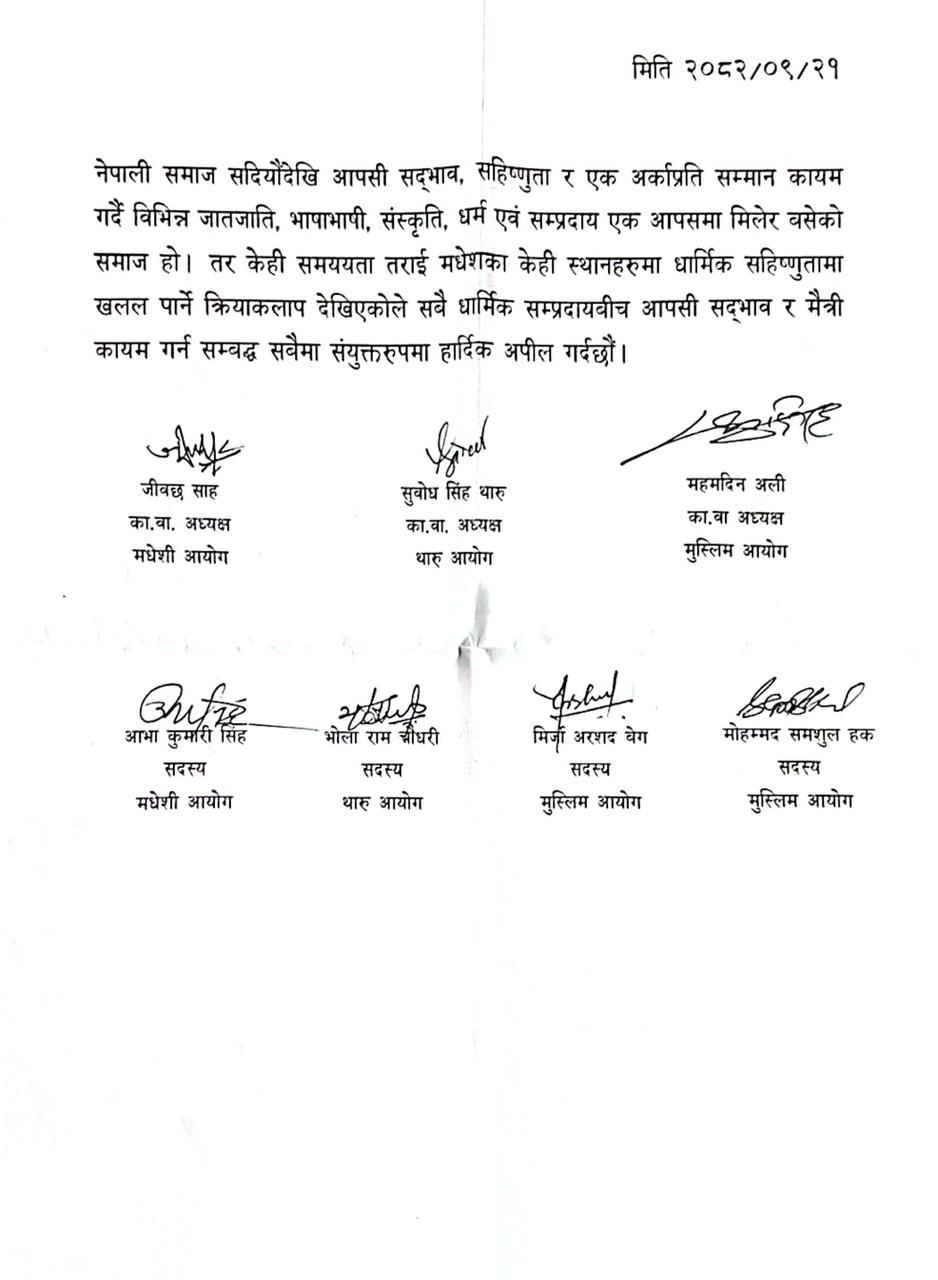 मिति २०८२/०९/२१
नेपाली समाज सदियौंदेखि आपसी सद्भाव, सहिष्णुता र एक अर्काप्रति सम्मान कायम
गर्दै विभिन्न जातजाति, भाषाभाषी, संस्कृति, धर्म एवं सम्प्रदाय एक आपसमा मिलेर वसेको
समाज हो। तर केही समययता तराई मधेशका केही स्थानहरुमा धार्मिक सहिष्णुतामा
खलल पार्ने क्रियाकलाप देखिएकोले सवै धार्मिक सम्प्रदायवीच आपसी सद्भाव र मैत्री
कायम गर्न सम्वद्ध सवैमा संयुक्तरुपमा हार्दिक अपील गर्दछौं।
जीवछ साह सुवोध सिंह थारु महमदिन अली
का.वा. अध्यक्ष का.वा. अध्यक्ष का.वा अध्यक्ष
मधेशी आयोग थारु आयोग मुस्लिम आयोग
आभा कुमारी सिंह भोला राम चौधरी मिर्जा अरशद वेग मोहम्मद समशुल हक
सदस्य सदस्य सदस्य सदस्य
मधेशी आयोग थारु आयोग मुस्लिम आयोग मुस्लिम आयोग